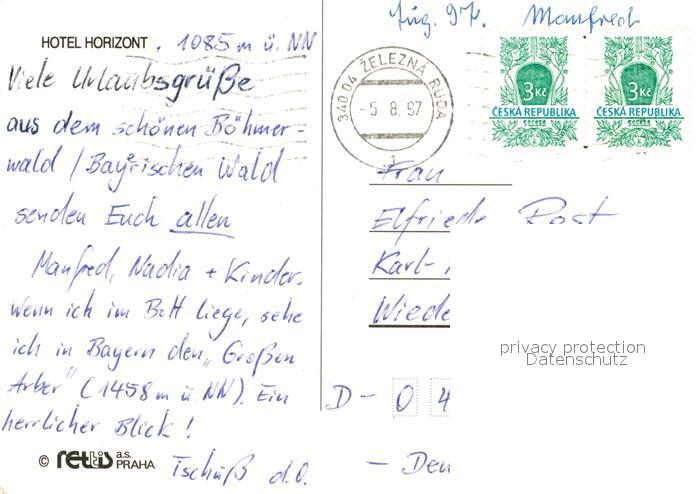 Aug. 97. Manfred
HOTEL HORIZONT . 1085 m ü. NN
Viele Urlaubsgrüße
aus dem schönen Böhmer-
wald / Bayrischen Wald
senden Euch allen
Manfred, Nadia + Kinder.
Wenn ich im Bett liege, sehe
ich in Bayern den „Großen
Arber" (1458 m ü. NN). Ein
herrlicher Blick!
Tschüß d.O.
© rettis a.s.
PRAHA
340 04 ŽELEZNÁ RUDA
-5. 8. 97
1
3 Kč
ČESKÁ REPUBLIKA
3 Kč
ČESKÁ REPUBLIKA
Frau
Elfriede Post
Karl-
Wiede
D - 0 4
- Deu
privacy protection
Datenschutz